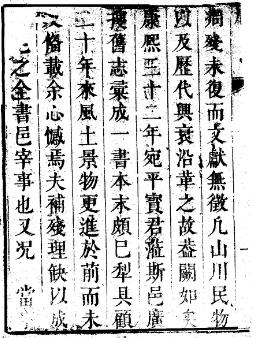 凋殘未復而文獻無徵凡山川民物
以及歷代興衰沿革之故葢闕如矣
康熙三十二年宛平寳君蒞斯邑廣
摉舊志彚成一書本末頗已犁具顧
二十年來風土景物更進於前而未
俗載余心憾焉夫補殘理缺以成
之全書邑宰事也又况 當